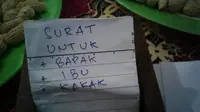 SURAT
UNTUK
+ BAPAK
+ IBU
+ KAKAK